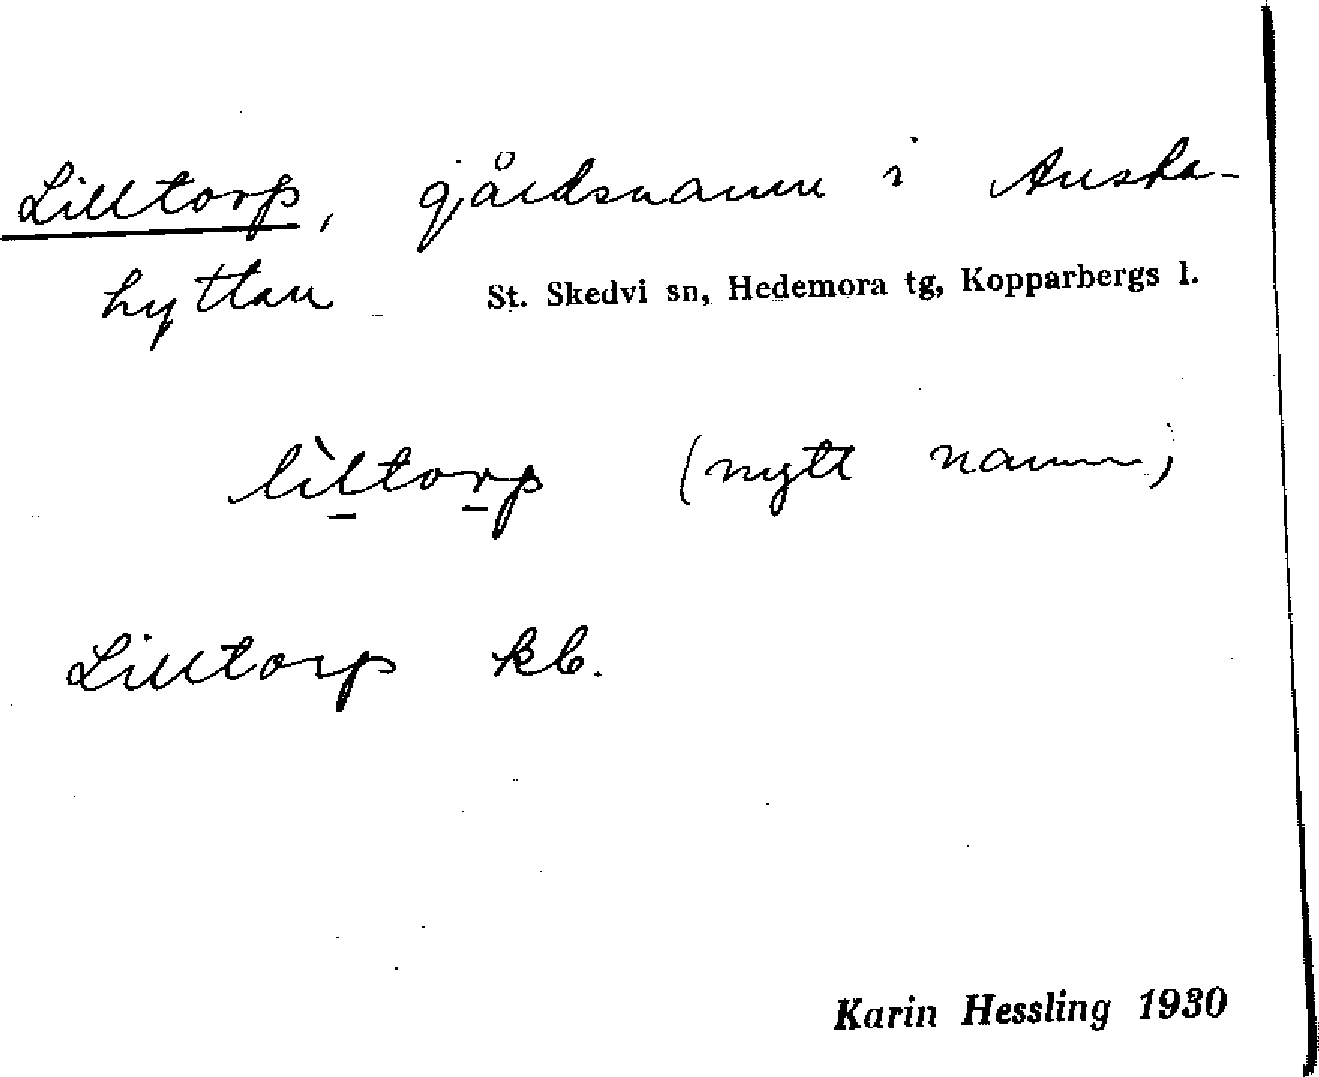 Lilltorp, gårdsnamn i Anska-
hyttan St. Skedvi sn, Hedemora tg, Kopparbergs l.
lìltorp (nytt namn)
Lilltorp kb.
Karin Hessling 1930